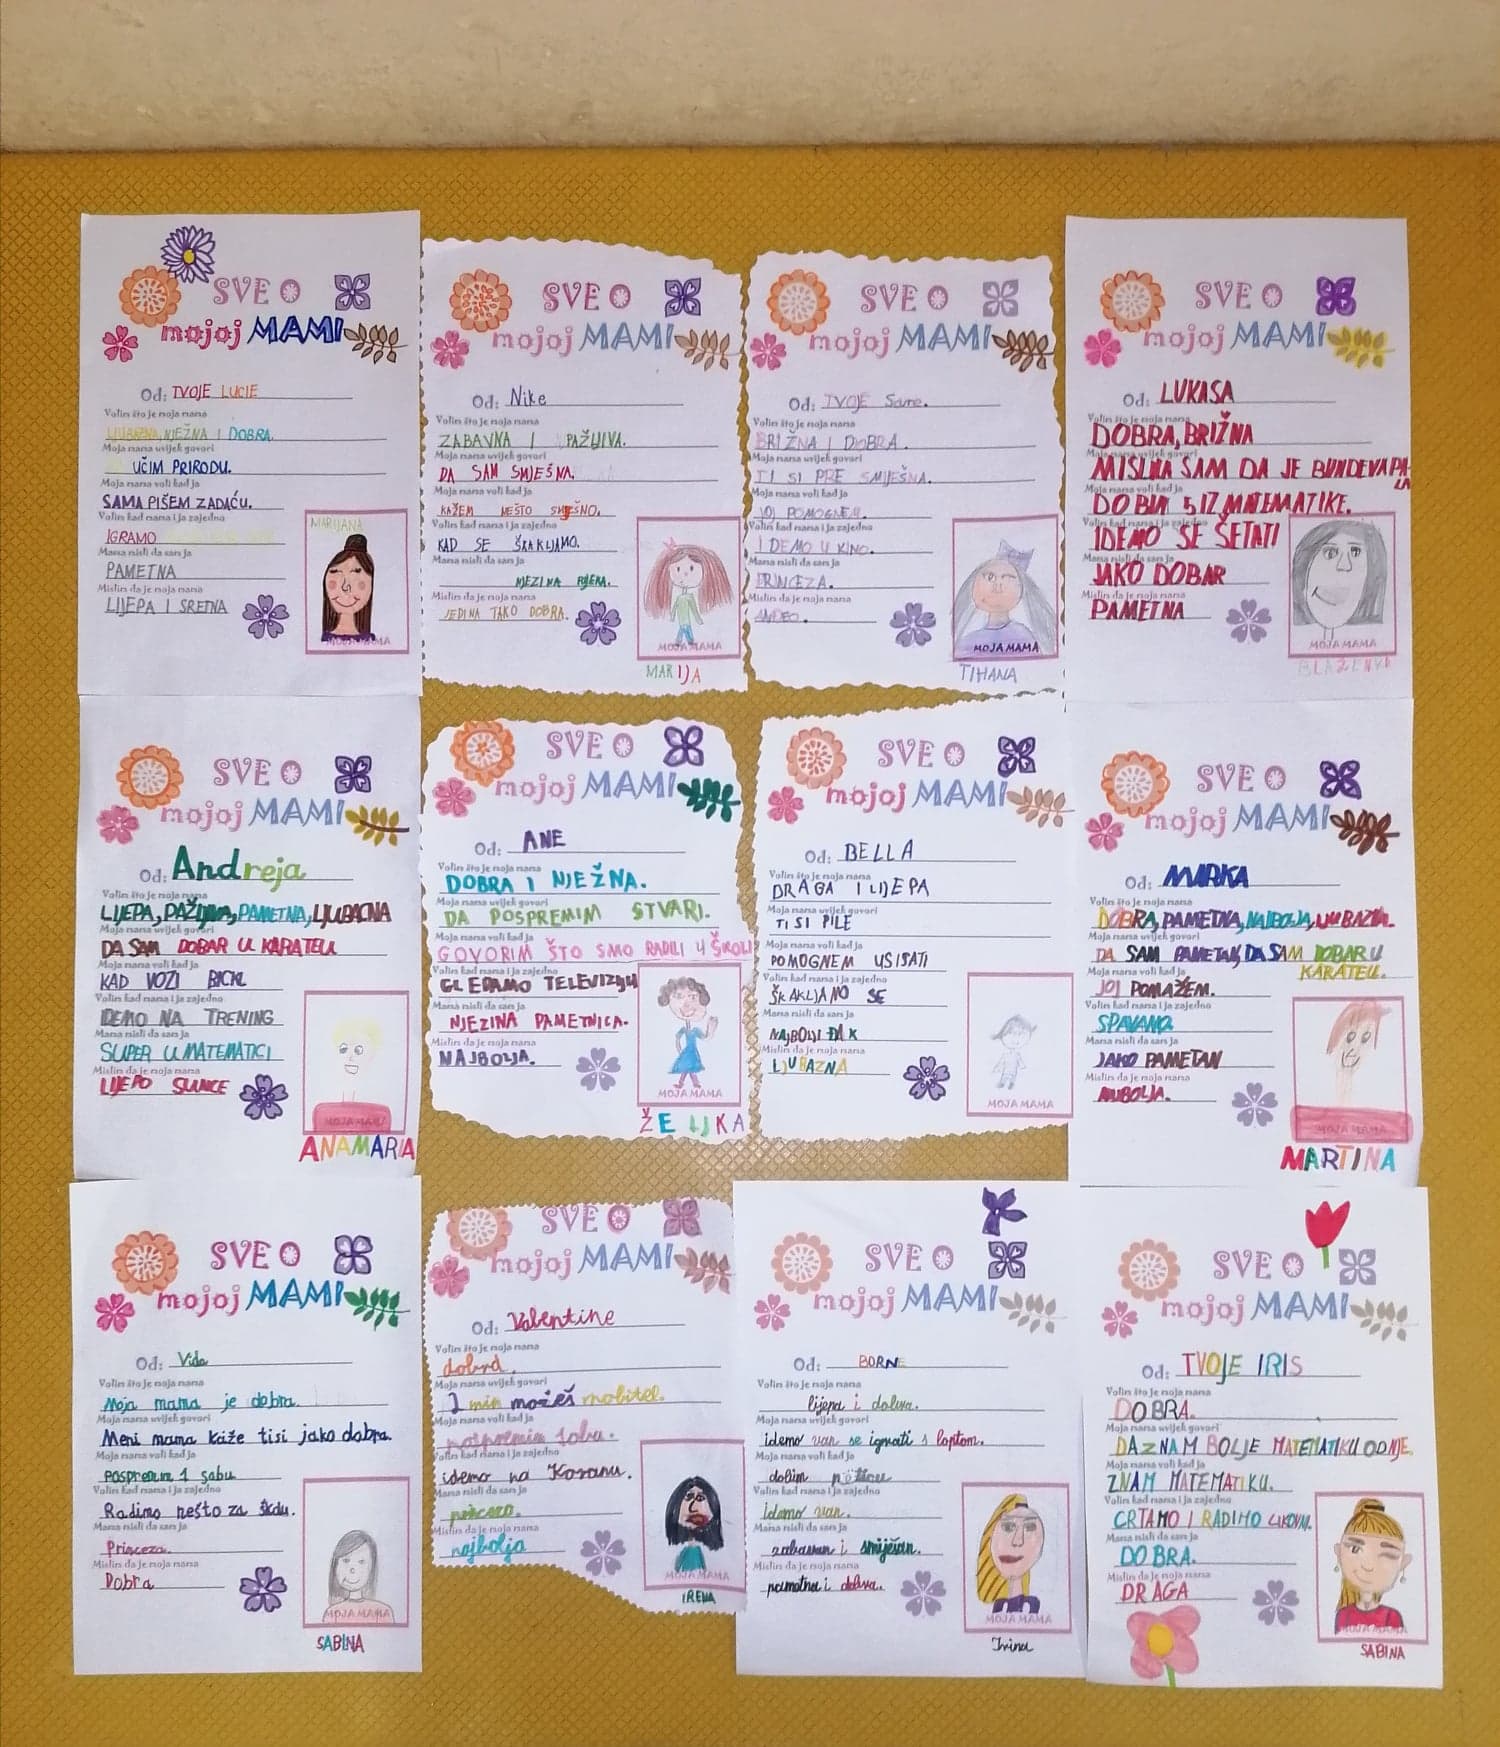 SVE O
mojoj MAMI
Od: TVOJE LUCIE
Volim što je moja mama
LJUBAZNA, NJEŽNA I DOBRA.
Moja mama uvijek govori
UČIM PRIRODU.
Moja mama voli kad ja
SAMA PIŠEM ZADAĆU.
Volim kad mama i ja zajedno
IGRAMO
Mama misli da sam ja
PAMETNA
Mislim da je moja mama
LIJEPA I SRETNA
MARIJANA
MOJA MAMA
SVE O
mojoj MAMI
Od: Nike
Volim što je moja mama
ZABAVNA I PAŽLJIVA.
Moja mama uvijek govori
DA SAM SMJEŠNA.
Moja mama voli kad ja
KAŽEM NEŠTO SMJEŠNO.
Volim kad mama i ja zajedno
KAD SE ŠKAKLJAMO.
Mama misli da sam ja
NJEZINA
Mislim da je moja mama
JEDINA TAKO DOBRA.
MOJA MAMA
MARIJA
SVE O
mojoj MAMI
Od: TVOJE Sare.
Volim što je moja mama
BRIŽNA I DOBRA.
Moja mama uvijek govori
TI SI PRE SMIJEŠNA.
Moja mama voli kad ja
JOJ POMOGNEM.
Volim kad mama i ja zajedno
IDEMO U KINO.
Mama misli da sam ja
PRINCEZA.
Mislim da je moja mama
ANĐEO.
MOJA MAMA
TIHANA
SVE O
mojoj MAMI
Od: LUKASA
Volim što je moja mama
DOBRA, BRIŽNA
Moja mama uvijek govori
MISLILA SAM DA JE BUNDEVA PA-
LA
Moja mama voli kad ja
DOBIM 5 IZ MATEMATIKE.
Volim kad mama i ja zajedno
IDEMO SE ŠETATI
Mama misli da sam ja
JAKO DOBAR
Mislim da je moja mama
PAMETNA
MOJA MAMA
BLAŽENKA
SVE O
mojoj MAMI
Od: Andreja
Volim što je moja mama
LIJEPA, PAŽLJIVA, PAMETNA, LJUBAZNA
Moja mama uvijek govori
DA SAM DOBAR U KARATEU
Moja mama voli kad ja
KAD VOZI BICKL
Volim kad mama i ja zajedno
IDEMO NA TRENING
Mama misli da sam ja
SUPER U MATEMATICI
Mislim da je moja mama
LIJEPO SUNCE
MOJA MAMA
ANAMARIA
SVE O
mojoj MAMI
Od: ANE
Volim što je moja mama
DOBRA I NJEŽNA.
Moja mama uvijek govori
DA POSPREMIM STVARI.
Moja mama voli kad ja
GOVORIM ŠTO SMO RADILI U ŠKOLI
Volim kad mama i ja zajedno
GLEDAMO TELEVIZIJU
Mama misli da sam ja
NJEZINA PAMETNICA.
Mislim da je moja mama
NAJBOLJA.
MOJA MAMA
ŽELJKA
SVE O
mojoj MAMI
Od: BELLA
Volim što je moja mama
DRAGA I LIJEPA
Moja mama uvijek govori
TI SI PILE
Moja mama voli kad ja
POMOGNEM USISATI
Volim kad mama i ja zajedno
ŠKAKLJAMO SE
Mama misli da sam ja
NAJBOLJI ĐAK
Mislim da je moja mama
LJUBAZNA
MOJA MAMA
SVE O
mojoj MAMI
Od: MARKA
Volim što je moja mama
DOBRA, PAMETNA, NAJBOLJA, LJUBAZNA.
Moja mama uvijek govori
DA SAM PAMETAN, DA SAM DOBAR U
KARATEU.
Moja mama voli kad ja
JOJ POMAŽEM.
Volim kad mama i ja zajedno
SPAVAMO.
Mama misli da sam ja
JAKO PAMETAN
Mislim da je moja mama
NAJBOLJA.
MOJA MAMA
MARTINA
SVE O
mojoj MAMI
Od: Vida
Volim što je moja mama
Moja mama je dobra.
Moja mama uvijek govori
Meni mama kaže ti si jako dobra.
Moja mama voli kad ja
pospremim sobu
Volim kad mama i ja zajedno
Radimo nešto za školu.
Mama misli da sam ja
Princeza.
Mislim da je moja mama
Dobra
MOJA MAMA
SABINA
SVE O
mojoj MAMI
Od: Valentine
Volim što je moja mama
dobra.
Moja mama uvijek govori
min možeš mobitel.
Moja mama voli kad ja
pospremim sobu.
Volim kad mama i ja zajedno
idemo na Koranu.
Mama misli da sam ja
princeza.
Mislim da je moja mama
najbolja
MOJA MAMA
IRENA
SVE O
mojoj MAMI
Od: BORNE
Volim što je moja mama
lijepa i dobra.
Moja mama uvijek govori
idemo van se igrati s loptom.
Moja mama voli kad ja
dobim peticu
Volim kad mama i ja zajedno
idemo van.
Mama misli da sam ja
zabavan i smiješan.
Mislim da je moja mama
pametna i dobra.
MOJA MAMA
Irina
SVE O
mojoj MAMI
Od: TVOJE IRIS
Volim što je moja mama
DOBRA.
Moja mama uvijek govori
DA ZNAM BOLJE MATEMATIKU OD NJE.
Moja mama voli kad ja
ZNAM MATEMATIKU.
Volim kad mama i ja zajedno
CRTAMO I RADIMO LIKOVNI.
Mama misli da sam ja
DOBRA.
Mislim da je moja mama
DRAGA
MOJA MAMA
SABINA